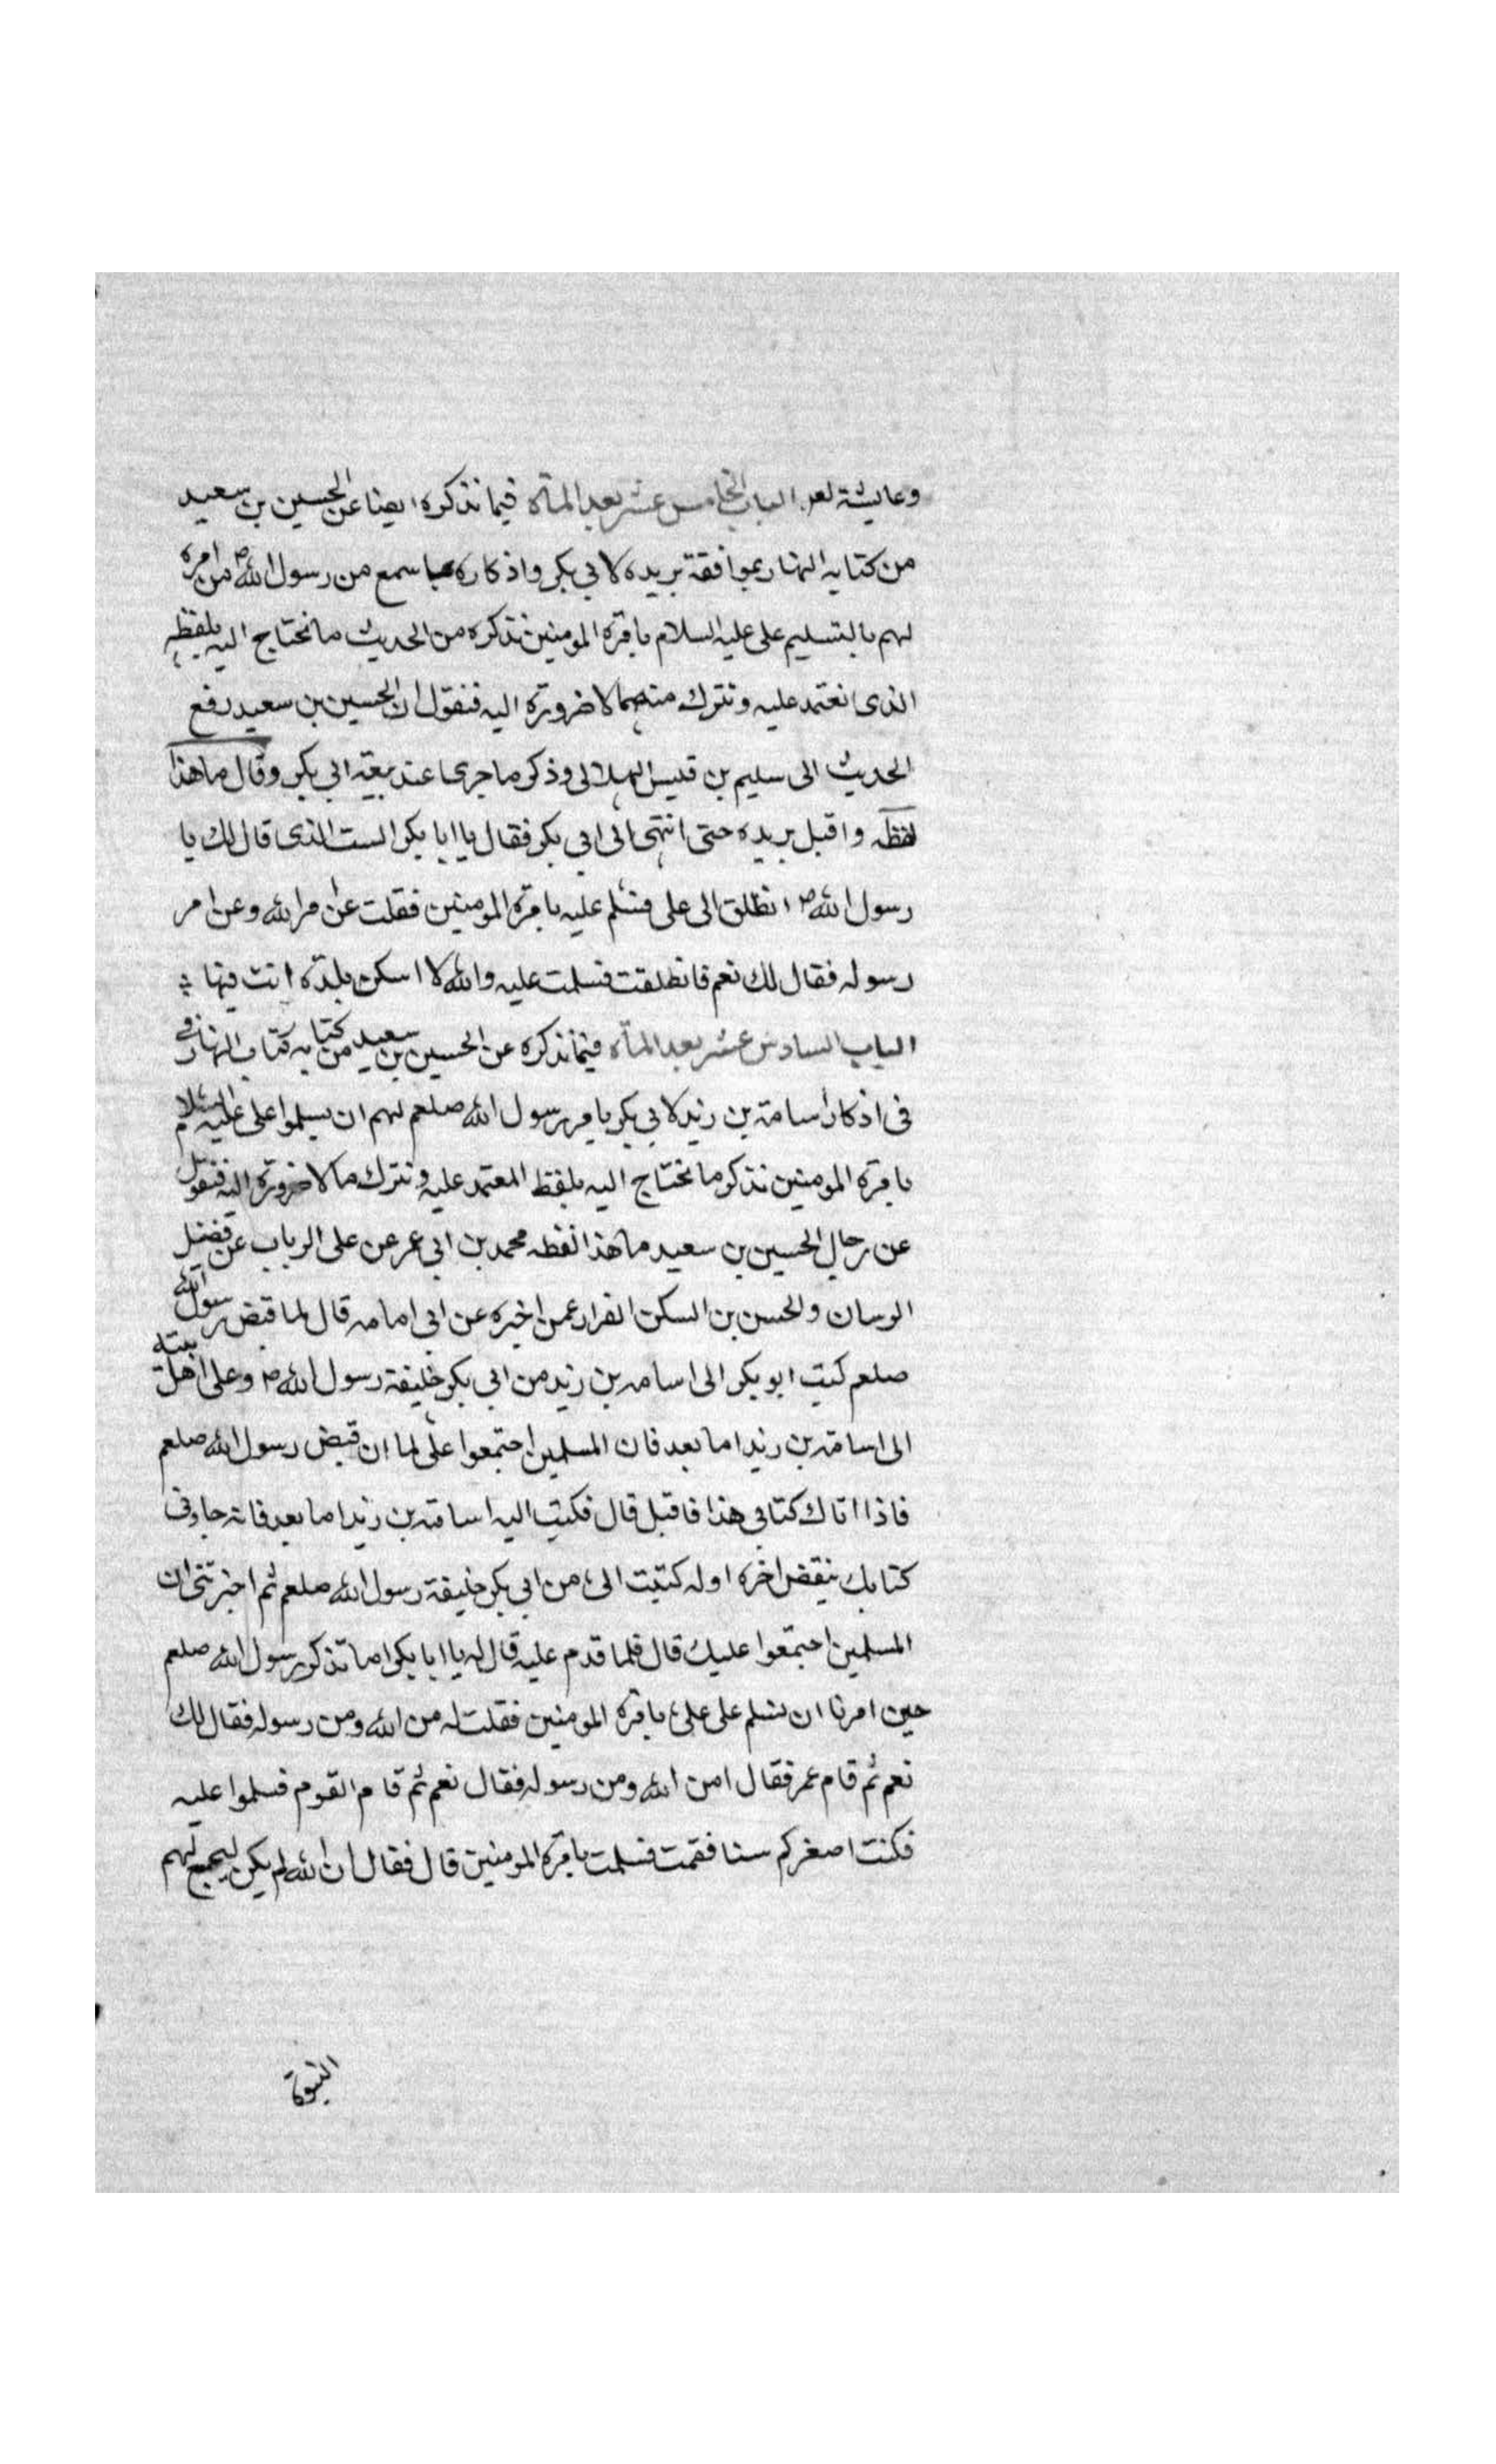 وعايشة لعر الباب الخامس عشر بعد المأة فيما نذكره ايضا عن الحسين بن سعيد
من كتابه البهار بموافقة بريده لابي بكر واذكاره بما سمع من رسول الله ص من امره
لهم بالتسليم على علي عليه السلام بامرة المومنين نذكره من الحديث ما نحتاج اليه بلفظه
الذى نعتمد عليه ونترك منهما لا ضرورة اليه فنقول ان الحسين بن سعيد رفع
الحديث الى سليم بن قيس الهلالى وذكر ما جرى عند بيعة ابى بكر وقال ما هذا
لفظه واقبل بريده حتى انتهى الى ابى بكر فقال يا ابا بكر الست الذى قال لك يا
رسول الله ص انطلق الى على فسلم عليه بامرة المومنين فقلت عن امر الله وعن امر
رسوله فقال لك نعم فانطلقت فسلمت عليه والله لا اسكن بلدة انت فيها
الباب السادس عشر بعد المأة فيما نذكره عن الحسين بن سعيد من كتابه كتاب البهار فى
فى اذكار اسامة بن زيد لابى بكر بامر رسول الله صلعم لهم ان يسلموا على على عليه السلام
بامرة المومنين نذكر ما نحتاج اليه بلفظ المعتمد عليه ونترك ما لا ضرورة اليه فنقول
عن رجال الحسين بن سعيد ما هذا لفظه محمد بن ابى عمر عن على الرباب عن فضيل
الرسان والحسن بن السكن الفرار عمن اخبره عن ابى امامه قال لما قبض رسول الله
صلعم كتب ابو بكر الى اسامه بن زيد من ابى بكر خليفة رسول الله ص وعلى اهل بيته
الى اسامة بن زيد اما بعد فان المسلمين اجتمعوا علىّ لما ان قبض رسول الله صلعم
فاذا اتاك كتابى هذا فاقبل قال فكتب اليه اسامة بن زيد اما بعد فانه جاونى
كتابك ينقض اخره اوله كتبت الى من ابى بكر خليفة رسول الله صلعم ثم اخبرتنى ان
المسلمين اجتمعوا عليك قال فلما قدم عليه قال له يا ابا بكر اما تذكر رسول الله صلعم
حين امرنا ان نسلم على على بامرة المومنين فقلت له من الله ومن رسوله فقال لك
نعم ثم قام عمر فقال امن الله ومن رسوله فقال نعم ثم قام القوم فسلموا عليه
فكنت اصغركم سنا فقمت فسلمت بامرة المومنين قال فقال ان الله لم يكن ليجمع لهم
النبوة